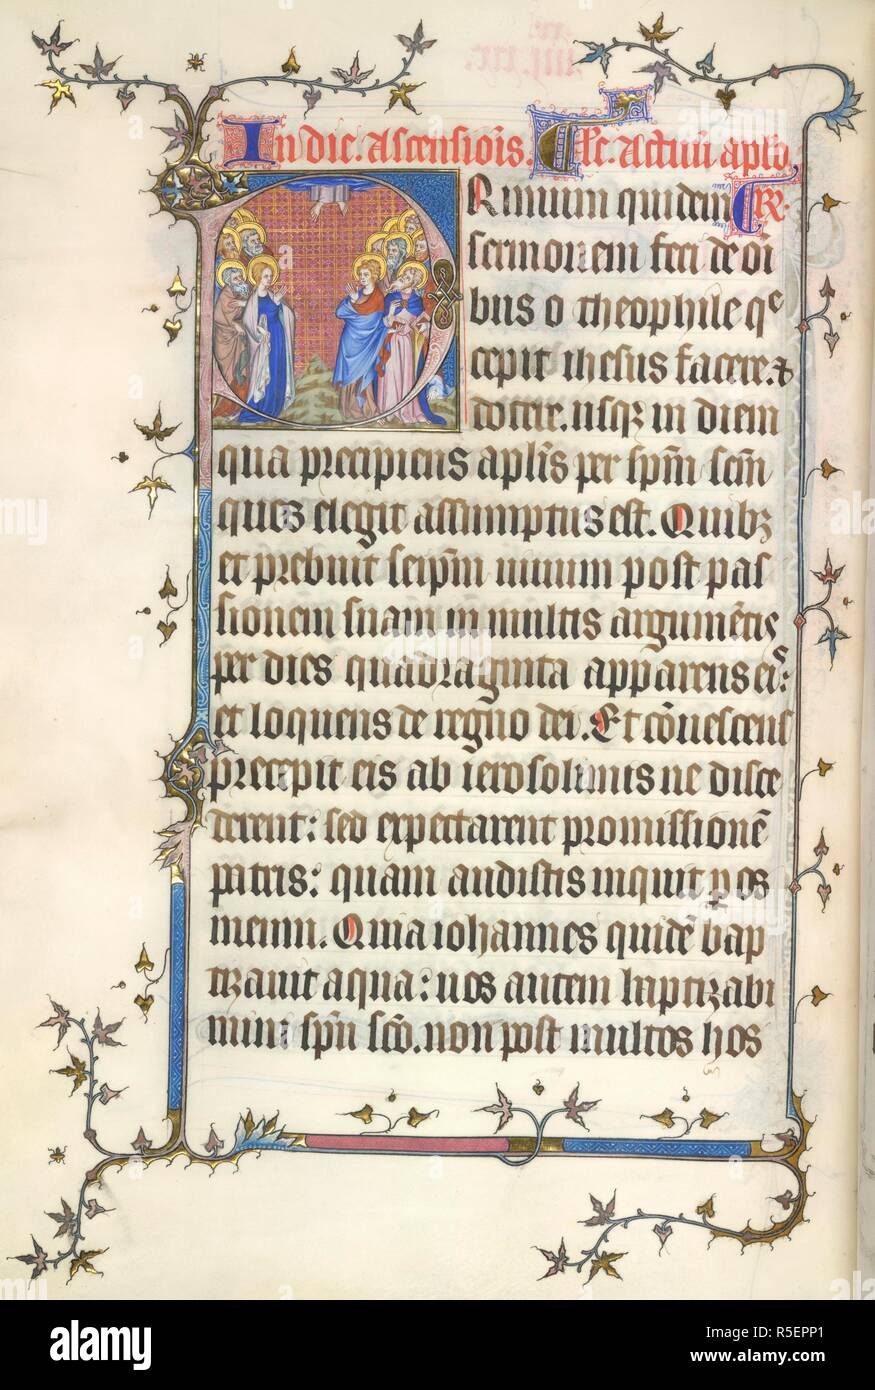 In die. Ascensionis. Lc̄. Actuū aplōꝝ.
Rimum quidem
sermonem feci de oī
bus o theophile q̄
cepit ihesus facere. ⁊
docere. usqꝫ in diem
qua precipiens aplīs per spm̄ scm̄
quos elegit assumptus est. Quibꝫ
et prebuit seipm̄ uiuum post pas
sionem suam in multis argumētis
per dies quadraginta apparens eis:
et loquens de regno dei. Et cōuescens
precepit eis ab ierosolimis ne disce
derent: sed expectarent promissionē
patris: quam audistis inquit p os
meum. Quia iohannes quidē bap
tizauit aqua: uos autem baptizabi
mini spū scō. non post multos hos
alamy
R5EPP1
www.alamy.com